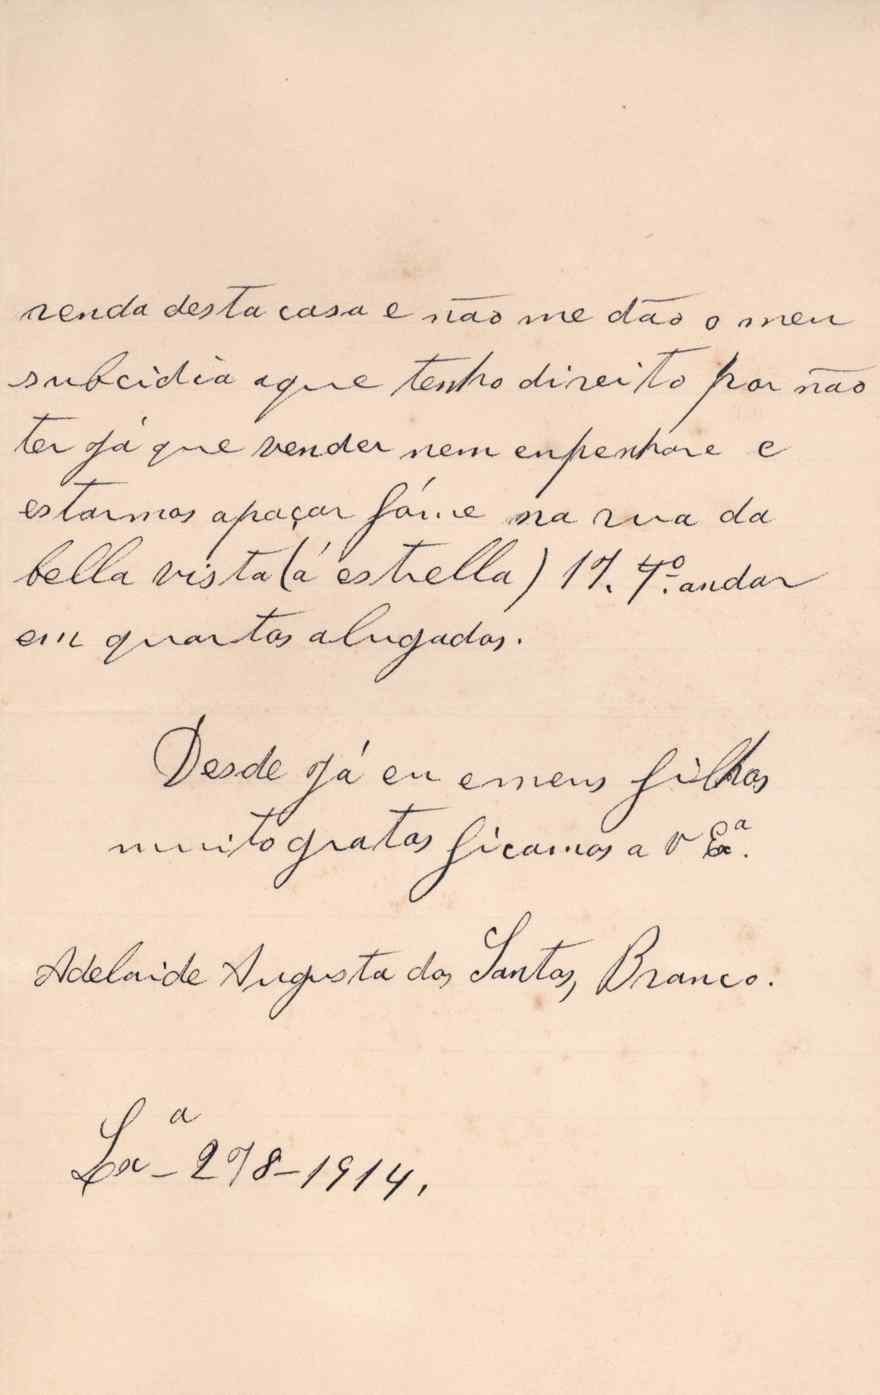 renda desta casa e não me dão o meu
subcidio aque tenho direito por não
ter já que vender nem enpenhare e
estarmos apaçar fóme na rua da
bella vista (á estrella) 17. 4º. andar
em quartos alugados.
Desde já eu emeus filhos
muito gratos ficamos a V Exª.
Adelaide Augusta dos Santos, Branco.
Lxª - 278-1914.